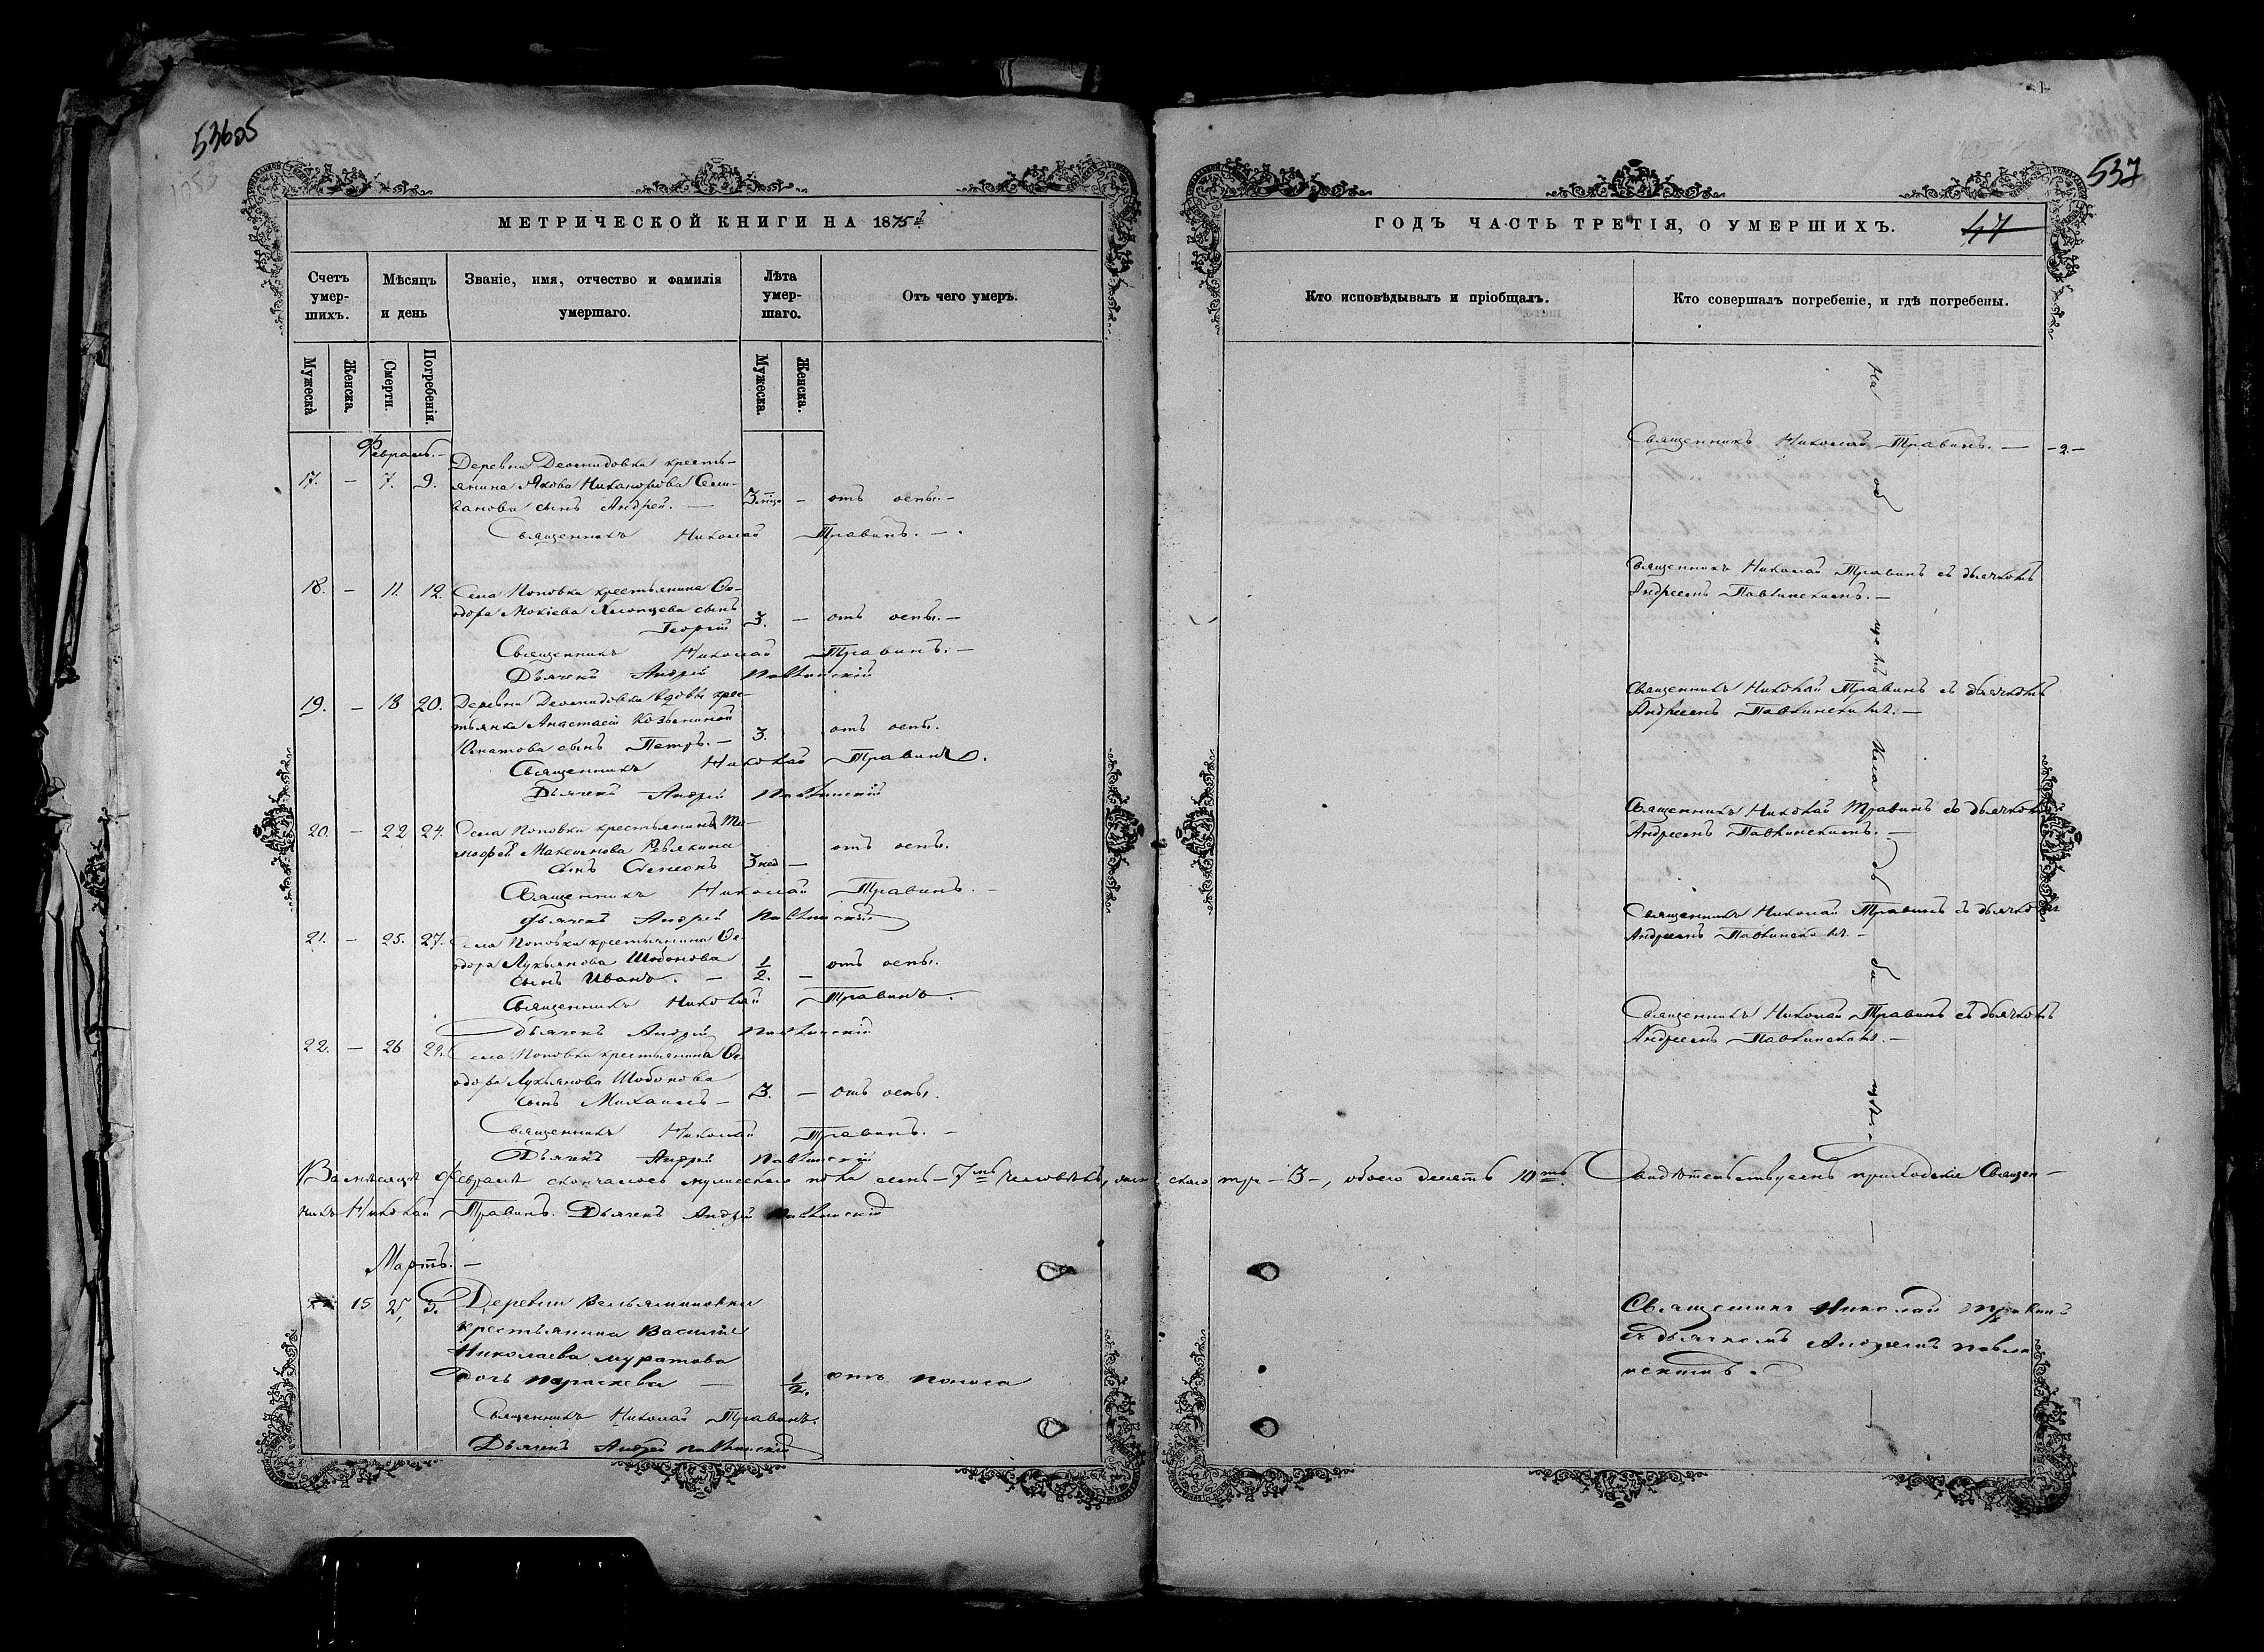 536об
537
МЕТРИЧЕСКОЙ КНИГИ НА 1875й
Счетъ умер-шихъ.
Мѣсяцъ и день
Званіе, имя, отчество и фамилія умершаго.
Лѣта умер-шаго.
Отъ чего умеръ.
Мужеска
Женска.
Смерти.
Погребенія.
Мужеска.
Женска.
Февраль.
17. – 7. 9. Деревни Деомидовки кресть-
янина Якова Никанорова Сели-
ванова сынъ Андрей. – – отъ оспы. –
Священникъ Николай Травинъ. –
18. – 11. 12. Села Поповки крестьянина Ѳе-
одора Мокіева сынъ
Георгій 3. – отъ оспы. –
Священникъ Николай Травинъ. –
Дьячекъ Андрей Павлинскій
19. – 18 20. Деревни Деомидовки вдовы крес-
тьянки Анастасіи Козьминой
сынъ Петръ. – 3. отъ оспы.
Священникъ Николай Травинъ.
Дьячекъ Андрей Павлинскій
20. – 22 24. Села Поповки крестьянинъ Ти-
мофей Максимова Ревякина
сынъ Симеонъ 3 нед – отъ оспы.
Священникъ Николай Травинъ. –
Дьячекъ Андрей Павлинскій
21. – 25. 27. Села Поповки крестьянина Ѳе-
одора Лукьянова Шобонова
сынъ Иванъ. – 1/2. – отъ оспы.
Священникъ Николай Травинъ.
Дьячекъ Андрей Павлинскій
22. – 26 Села Поповки крестьянина Ѳе-
одора Лукьянова Шобонова
сынъ Михаилъ – 3. – отъ оспы.
Священникъ Николай Травинъ. –
Дьячекъ Андрей Павлинскій
Въ мѣсяцѣ Февралѣ скончалось мужескаго пола семь – 7мь человѣкъ, женскаго три – 3 –, обоего десять 10ть. Свидѣтельствуемъ приходскіе Священ-
никъ Николай Травинъ. Дьячекъ Андрей Павлинскій
Мартъ. –
15 5. Деревни Вельяминовки
крестьянина Василія
Николаева Муратова
дочь Параскева – 1/2. отъ поноса
Священникъ Николай Травинъ.
Дьячекъ Андрей Павлинскій
ГОДЪ ЧАСТЬ ТРЕТІЯ, О УМЕРШИХЪ.
47
Кто исповѣдывалъ и пріобщалъ.
Кто совершалъ погребеніе, и гдѣ погребены.
Священникъ Николай Травинъ. –
Священникъ Николай Травинъ съ дьячкомъ
Андреемъ Павлинскимъ. –
Священникъ Николай Травинъ съ дьячкомъ
Андреемъ Павлинскимъ. –
Священникъ Николай Травинъ съ дьячкомъ
Андреемъ Павлинскимъ. –
Священникъ Николай Травинъ съ дьячкомъ
Андреемъ Павлинскимъ. –
Священникъ Николай Травинъ съ дьячкомъ
Андреемъ Павлинскимъ. –
Священникъ Николай Травинъ
съ дьячкомъ Андреемъ Павли
нскимъ.
На общемъ кладбищѣ.